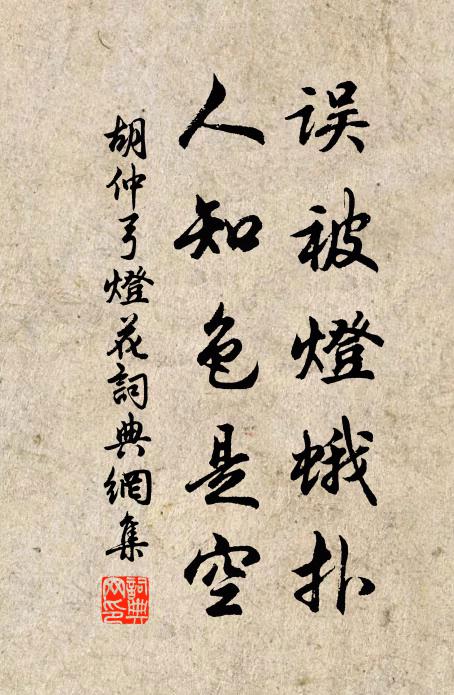 误被燈蛾扑
人知色是空
胡仲弓燈花詞典網集
詞典網印